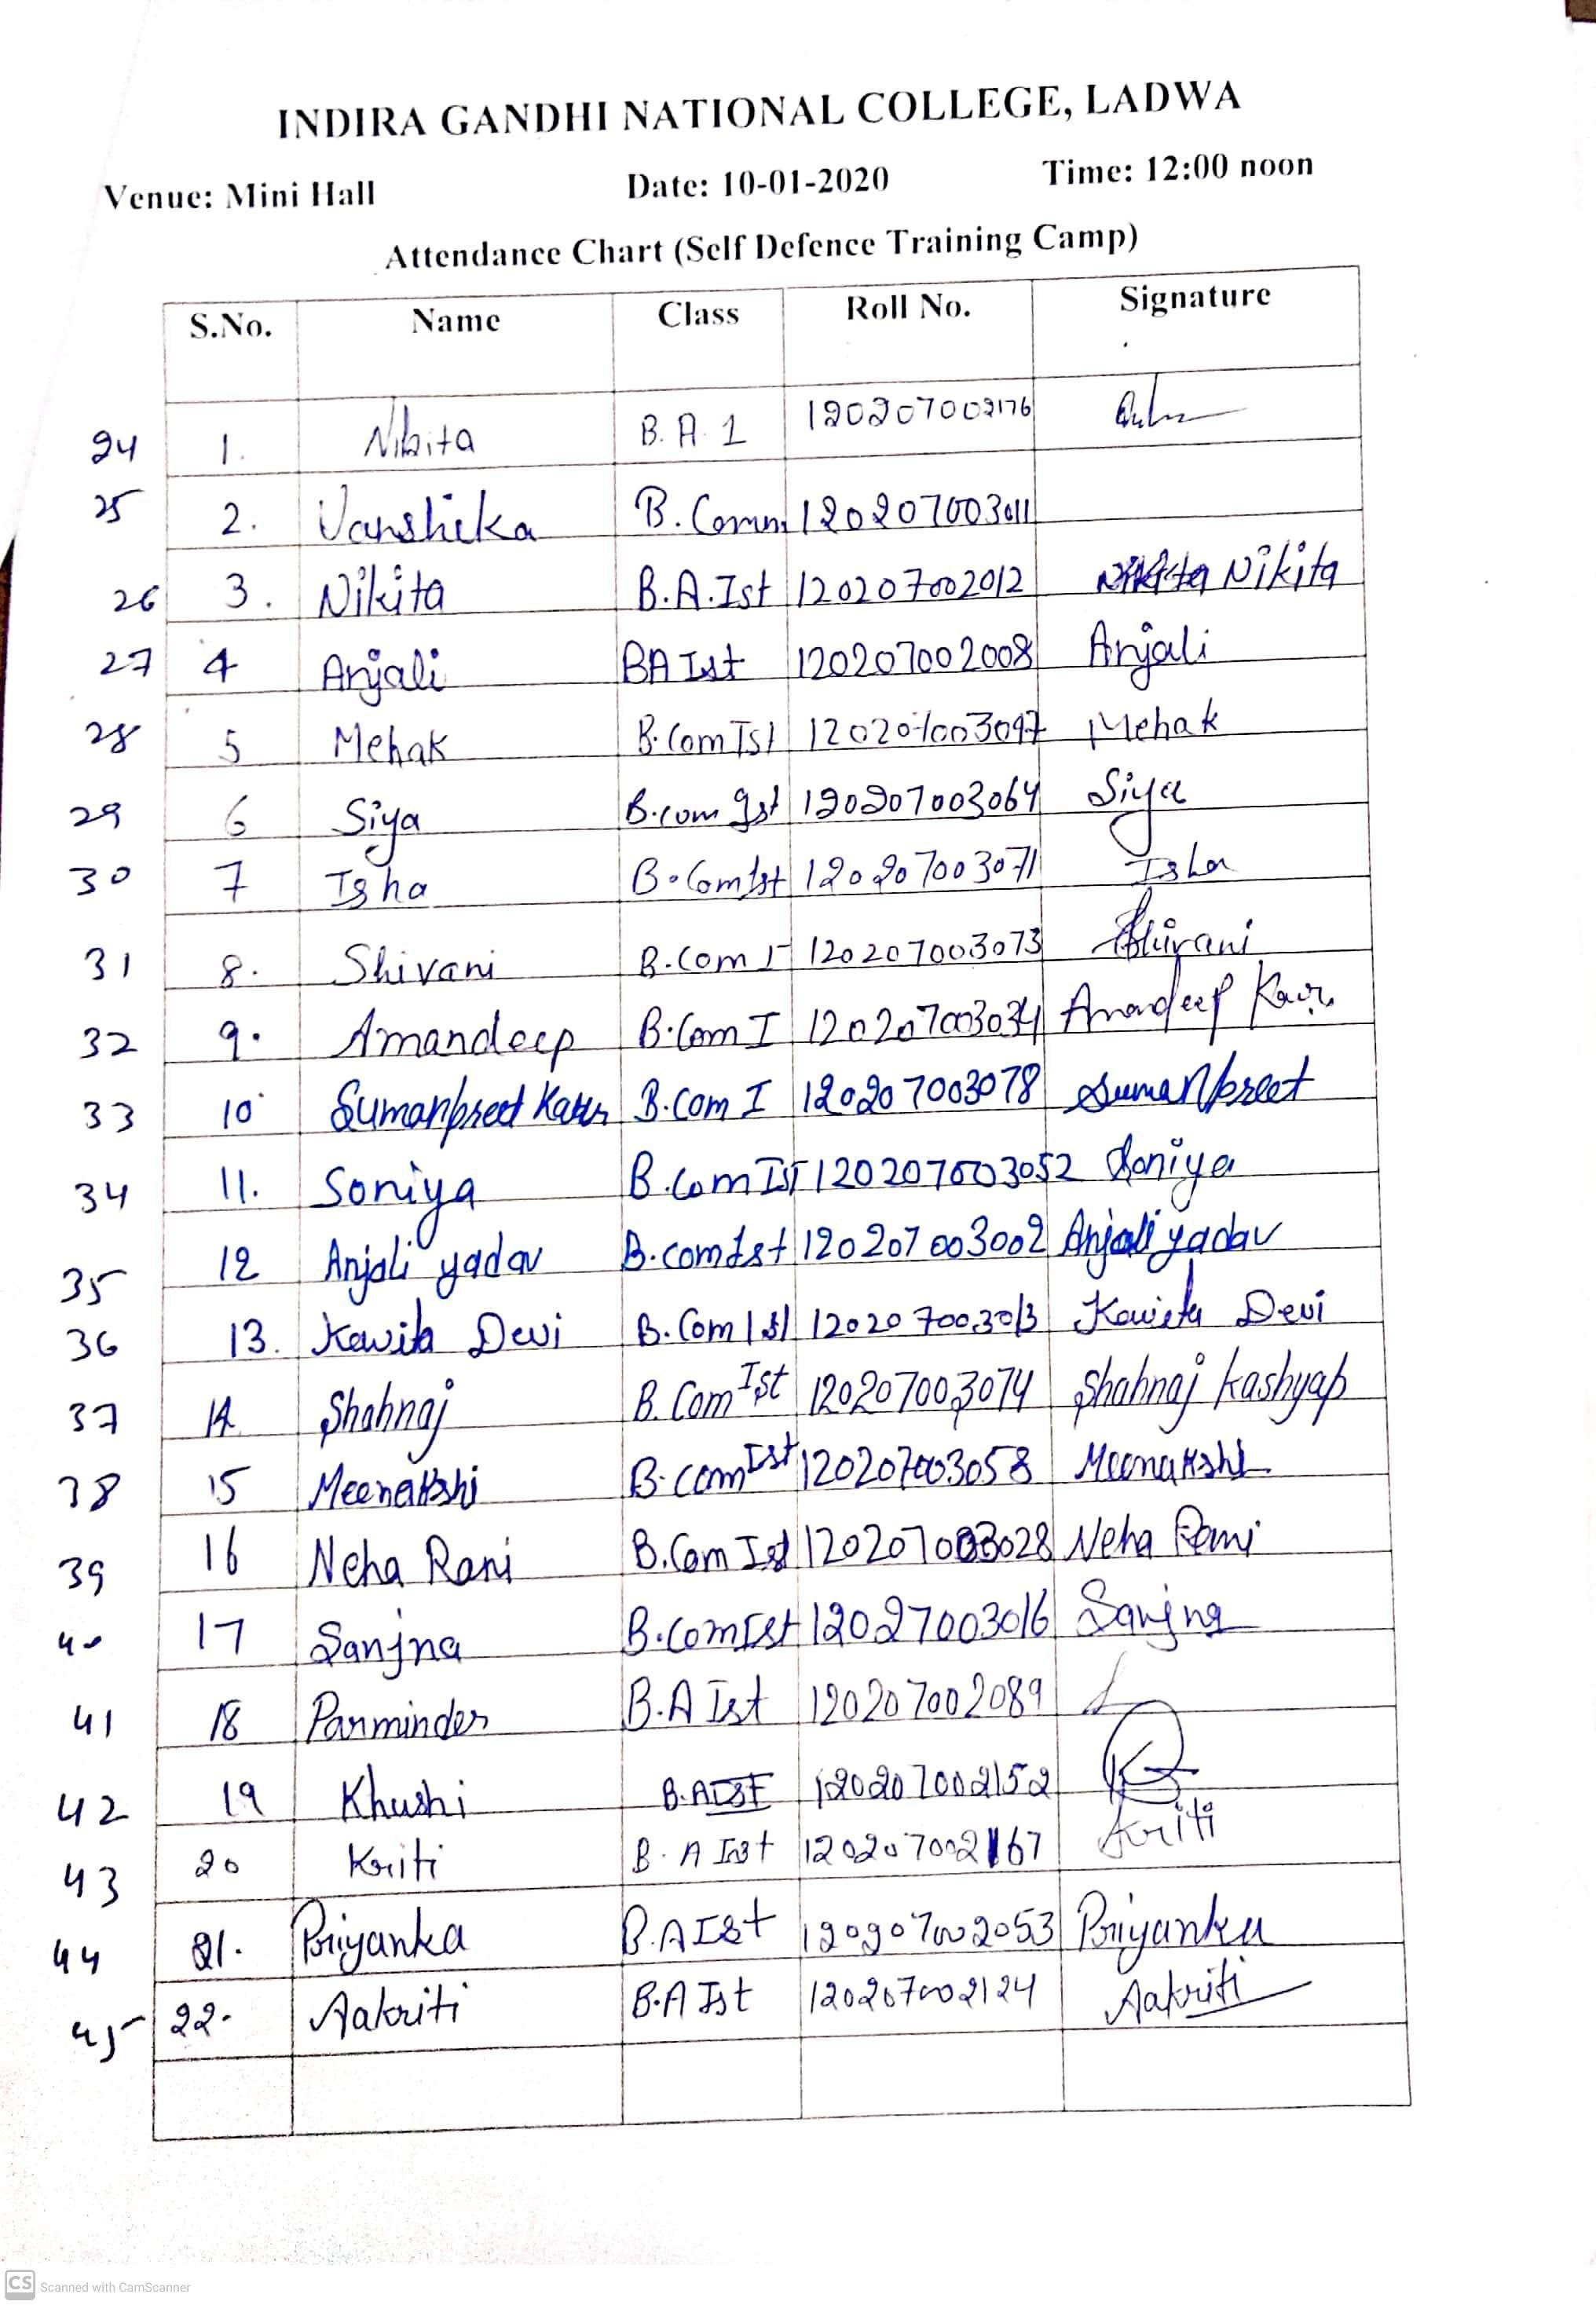 INDIRA GANDHI NATIONAL COLLEGE, LADWA
Venue: Mini Hall Date: 10-01-2020 Time: 12:00 noon
Attendance Chart (Self Defence Training Camp)
S.No. Name Class Roll No. Signature
24 1. Nikita B.A. 1 120207002176
25 2. Vanshika B.Comm. 120207003011
26 3. Nikita B.A.Ist 120207002012 Nikita Nikita
27 4 Anjali BA Ist 120207002008 Anjali
28 5 Mehak B.Com Ist 120207003047 Mehak
29 6 Siya B.com Ist 120207003064 Siya
30 7 Isha B.Com Ist 120207003071 Isha
31 8. Shivani B.Com I 120207003073 Shivani
32 9. Amandeep B.Com I 120207003034 Amandeep Kaur
33 10 Sumanpreet Kaur B.Com I 120207003078 Sumanpreet
34 11. Soniya B.Com Ist 120207003052 Soniya
35 12 Anjali yadav B.com Ist 120207003002 Anjali yadav
36 13. Kavita Devi B.Com Ist 120207003013 Kavita Devi
37 14 Shahnaj B.Com Ist 120207003074 Shahnaj kashyap
38 15 Meenakshi B.com Ist 120207003058 Meenakshi
39 16 Neha Rani B.Com Ist 120207003028 Neha Rani
40 17 Sanjna B.Com Ist 12027003016 Sanjna
41 18 Parminder B.A Ist 120207002089
42 19 Khushi B.A Ist 120207002152
43 20 Kriti B.A Ist 120207002167 Kriti
44 21. Priyanka B.A Ist 120207002053 Priyanka
45 22. Aakriti B.A Ist 120207002124 Aakriti
CS Scanned with CamScanner